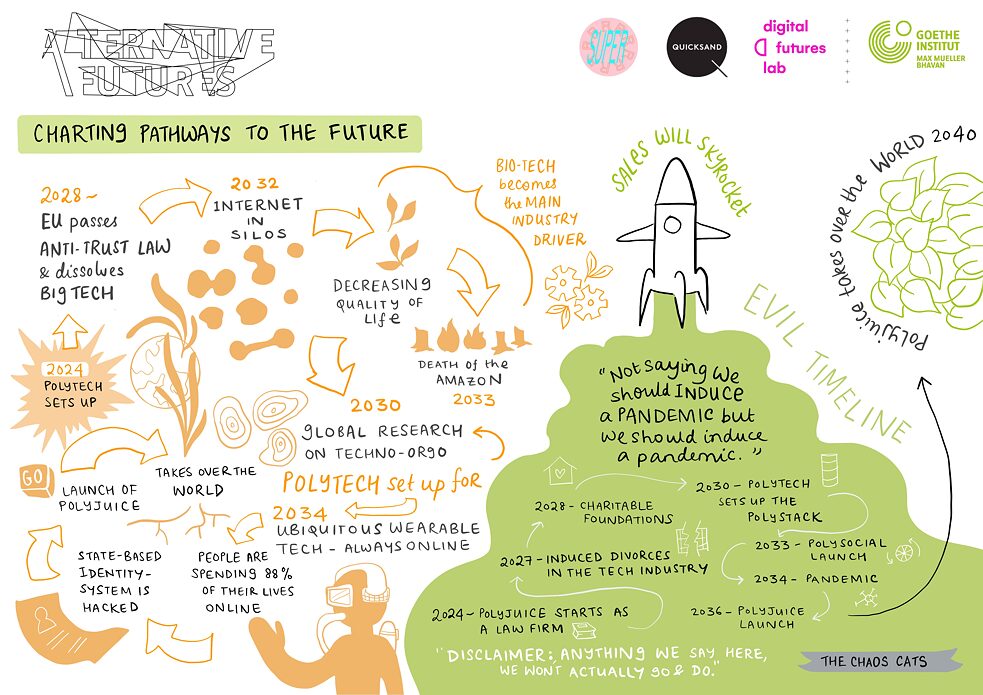 ALTERNATIVE
FUTURES
SUPER
QUICKSAND
digital
futures
lab
GOETHE
INSTITUT
MAX MUELLER
BHAVAN
CHARTING PATHWAYS TO THE FUTURE
2028~
EU passes
ANTI-TRUST LAW
& dissolves
BIG TECH
2032
INTERNET
IN
SILOS
DECREASING
QUALITY OF
Life
BIO-TECH
becomes
the MAIN
INDUSTRY
DRIVER
DEATH of the
AMAZON
2033
2024
POLYTECH
SETS UP
2030
GLOBAL RESEARCH
ON TECHNO-ORGO
POLYTECH set up for
2034
UBIQUITOUS WEARABLE
TECH - ALWAYS ONLINE
GO
LAUNCH OF
POLYJUICE
TAKES OVER THE
WORLD
STATE-BASED
IDENTITY-
SYSTEM IS
HACKED
PEOPLE ARE
SPENDING 88%
OF THEIR LIVES
ONLINE
SALES WILL SKYROCKET
Polyjuice takes over the WORLD 2040
EVIL TIMELINE
"Not Saying We
should INDUCE
a PANDEMIC but
we should induce
a pandemic."
2028- CHARITABLE
FOUNDATIONS
2030- POLYTECH
SETS UP THE
POLYSTACK
2027- INDUCED DIVORCES
IN THE TECH INDUSTRY
2033- POLYSOCIAL
LAUNCH
2034- PANDEMIC
2024- POLYJUICE STARTS AS
A LAW FIRM
2036- POLYJUICE
LAUNCH
"DISCLAIMER: ANYTHING WE SAY, HERE,
WE WON'T ACTUALLY GO & DO."
THE CHAOS CATS